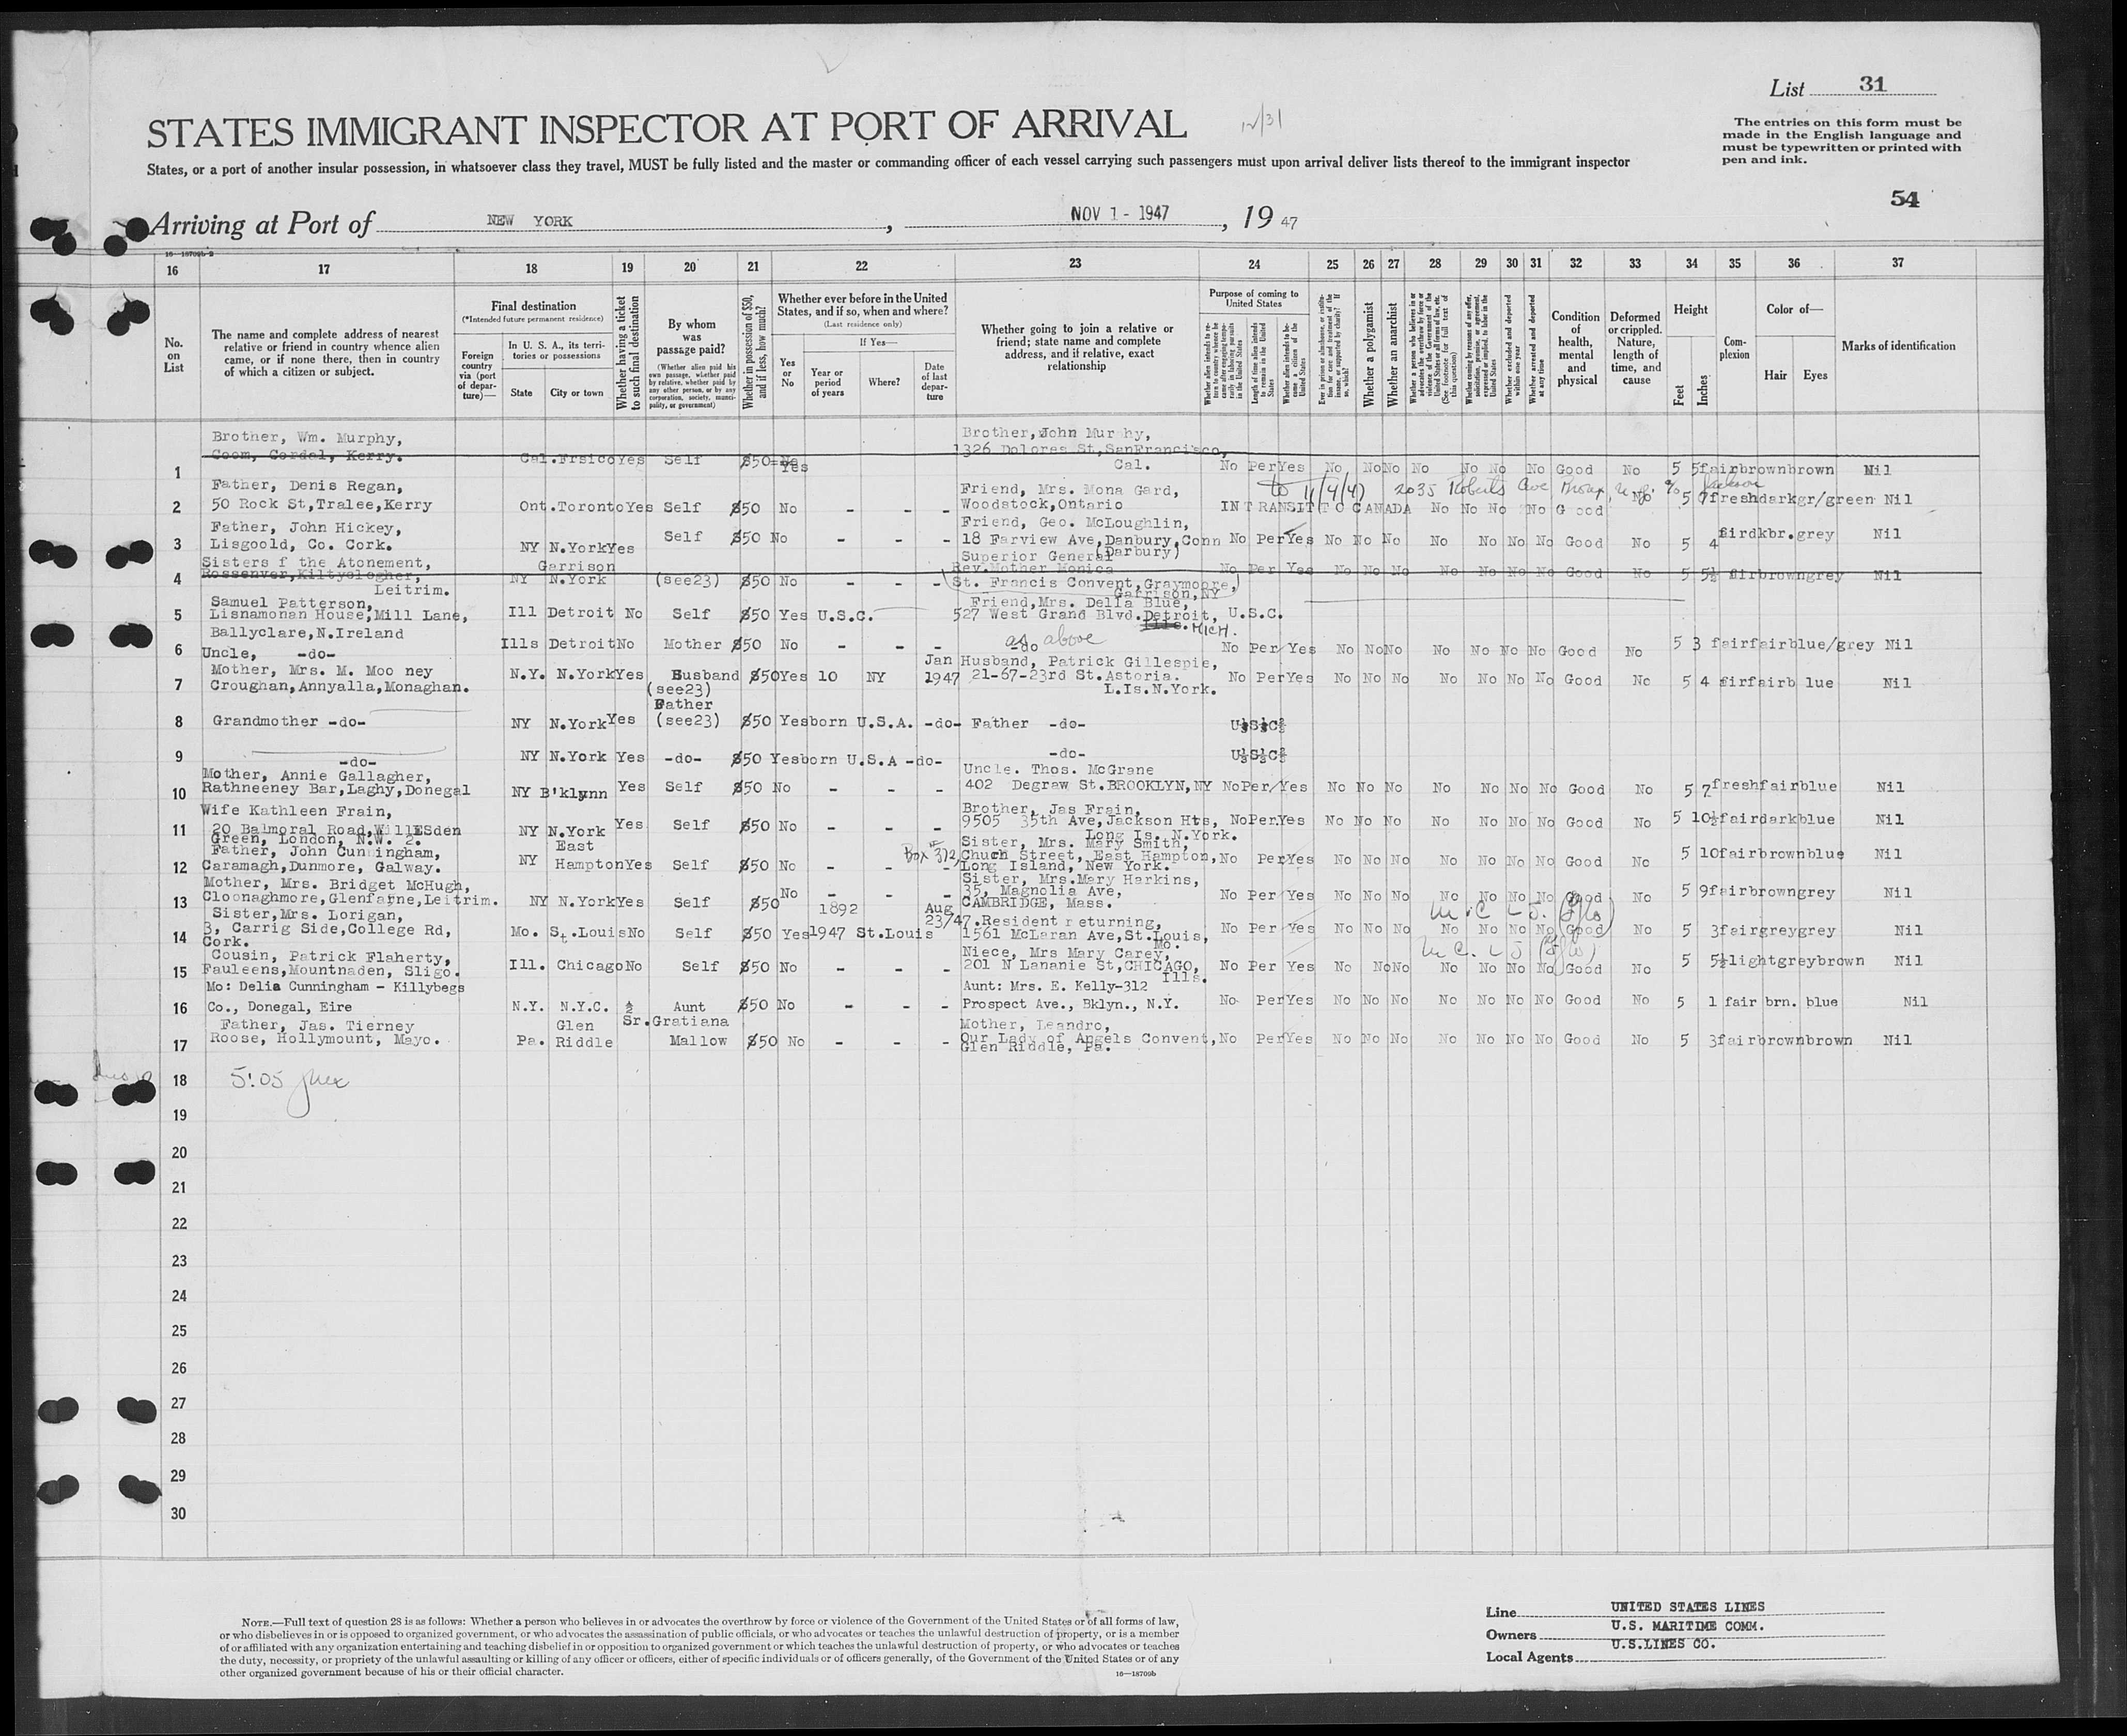 List 31
STATES IMMIGRANT INSPECTOR AT PORT OF ARRIVAL
The entries on this form must be
made in the English language and
must be typewritten or printed with
pen and ink.
States, or a port of another insular possession, in whatsoever class they travel, MUST be fully listed and the master or commanding officer of each vessel carrying such passengers must upon arrival deliver lists thereof to the immigrant inspector
54
Arriving at Port of NEW YORK , NOV 1 - 1947 , 19 47
16 17 18 19 20 21 22 23 24 25 26 27 28 29 30 31 32 33 34 35 36 37
No.
on
List
The name and complete address of nearest
relative or friend in country whence alien
came, or if none there, then in country
of which a citizen or subject.
Final destination
(*Intended future permanent residence)
Foreign
country
via (port
of depar-
ture)—
In U. S. A., its terri-
tories or possessions
State City or town
Whether having a ticket
to such final destination
By whom
was
passage paid?
(Whether alien paid his
own passage, whether paid
by relative, whether paid by
any other person, or by any
corporation, society, munici-
pality, or government)
Whether in possession of $50,
and if less, how much?
Whether ever before in the United
States, and if so, when and where?
(Last residence only)
Yes
or
No
If Yes—
Year or
period
of years
Where?
Date
of last
depar-
ture
Whether going to join a relative or
friend; state name and complete
address, and if relative, exact
relationship
Purpose of coming to
United States
Length of time alien intends
to remain in the United
States
Whether alien intends to be-
come a citizen of the
United States
Whether a polygamist
Whether an anarchist
Whether arrested and deported
at any time
Condition
of
health,
mental
and
physical
Deformed
or crippled.
Nature,
length of
time, and
cause
Height
Feet Inches
Com-
plexion
Color of—
Hair Eyes
Marks of identification
Brother, Wm. Murphy, Brother, John Mur hy,
Coom, Cordal, Kerry. 1326 Dolores St, SanFrancisco,
1 Cal. Frsico Yes Self $50 Yes Cal. No Per Yes No No No No No No No Good No 5 5 fair brown brown Nil
Father, Denis Regan, Friend, Mrs. Mona Gard, to 11/4/47 2035 Roberts Ave Bronx
2 50 Rock St, Tralee, Kerry Ont. Toronto Yes Self $50 No - - - Woodstock, Ontario IN TRANSIT TO CANADA No No No No G ood No 5 7 fresh dark gr/green Nil
Father, John Hickey, Friend, Geo. McLoughlin,
3 Lisgoold, Co. Cork. NY N.York Yes Self $50 No - - - 18 Farview Ave, Danbury, Conn No Per Yes No No No No No No No Good No 5 4 fir dkbr. grey Nil
(Darbury)
Sisters f the Atonement, Garrison Superior General
Rossenver, Kiltyclogher, Rev. Mother Monica
4 Leitrim. NY N.York (see23) $50 No - - - St. Francis Convent, Graymoore, No Per Yes No No No No No No No Good No 5 5½ fir brown grey Nil
Garrison, NY
Samuel Patterson, Friend, Mrs. Della Blue,
5 Lisnamonan House, Mill Lane, Ill Detroit No Self $50 Yes U.S.C. 527 West Grand Blvd. Detroit, U.S.C.
Ballyclare, N.Ireland Ills. MICH.
as above
6 Uncle, -do- Ills Detroit No Mother $50 No - - - -do No Per Yes No No No No No No No Good No 5 3 fair fair blue/grey Nil
Mother, Mrs. M. Moo ney Jan Husband, Patrick Gillespie,
7 Croughan, Annyalla, Monaghan. N.Y. N.York Yes Busband $50 Yes 10 NY 1947 21-67-23rd St. Astoria. No Per Yes No No No No No No No Good No 5 4 fir fair b lue Nil
(see23) L.Is.N.York.
Father
8 Grandmother -do- NY N.York Yes (see23) $50 Yes born U.S.A. -do- Father -do- U.S.C.
9 -do- NY N.York Yes -do- $50 Yes born U.S.A -do- -do- U.S.C.
Mother, Annie Gallagher, Uncle. Thos. McGrane
10 Rathneeney Bar, Laghy, Donegal NY B'klynn Yes Self $50 No - - - 402 Degraw St. BROOKLYN, NY No Per Yes No No No No No No No Good No 5 7 fresh fair blue Nil
Wife Kathleen Frain, Brother, Jas Frain,
11 20 Balmoral Road, WillESden NY N.York Yes Self $50 No - - - 9505 35th Ave, Jackson Hts, No Per Yes No No No No No No No Good No 5 10½ fair dark blue Nil
Green, London, N.W. 2. Long Is. N.York.
Father, John Cunningham, East Sister, Mrs. Mary Smith,
12 Caramagh, Dunmore, Galway. NY Hampton Yes Self $50 No - - - Box 372 Chuch Street, East Hampton, No Per Yes No No No No No No No Good No 5 10 fair brown blue Nil
Long Island, New York.
Mother, Mrs. Bridget McHugh, Sister, Mrs. Mary Harkins,
13 Cloonaghmore, Glenfarne, Leitrim. NY N.York Yes Self $50 No - - - 35, Magnolia Ave, No Per Yes No No No No No No No Good No 5 9 fair brown grey Nil
CAMBRIDGE, Mass.
Sister, Mrs. Lorigan, 1892 Aug
14 3, Carrig Side, College Rd, Mo. St. Louis No Self $50 Yes 1947 St. Louis 23/47. Resident r eturning, No Per Yes No No No No No No No Good No 5 3 fair grey grey Nil
Cork. 1561 McLaran Ave, St. Louis, Mo.
Cousin, Patrick Flaherty, Niece, Mrs Mary Carey,
15 Fauleens, Mountnaden, Sligo. Ill. Chicago No Self $50 No - - - 201 N Lananie St, CHICAGO, No Per Yes No No No No No No No Good No 5 5½ light grey brown Nil
Ills.
Mo: Delia Cunningham - Killybegs Aunt: Mrs. E. Kelly-312
16 Co., Donegal, Eire N.Y. N.Y.C. Aunt $50 No - - - Prospect Ave., Bklyn., N.Y. No Per Yes No No No No No No No Good No 5 1 fair brn. blue Nil
Father, Jas. Tierney Glen Sr. Gratiana Mother, Leandro,
17 Roose, Hollymount, Mayo. Pa. Riddle Mallow $50 No - - - Our Lady of Angels Convent, No Per Yes No No No No No No No Good No 5 3 fair brown brown Nil
Glen Riddle, Pa.
18 5:05
19
20
21
22
23
24
25
26
27
28
29
30
NOTE.—Full text of question 28 is as follows: Whether a person who believes in or advocates the overthrow by force or violence of the Government of the United States or of all forms of law,
or who disbelieves in or is opposed to organized government, or who advocates the assassination of public officials, or who advocates or teaches the unlawful destruction of property, or is a member
of or affiliated with any organization entertaining and teaching disbelief in or opposition to organized government or which teaches the unlawful destruction of property, or who advocates or teaches
the duty, necessity, or propriety of the unlawful assaulting or killing of any officer or officers, either of specific individuals or of officers generally, of the Government of the United States or of any
other organized government because of his or their official character.
16—18709b
Line UNITED STATES LINES
Owners U.S. MARITIME COMM.
Local Agents U.S.LINES CO.